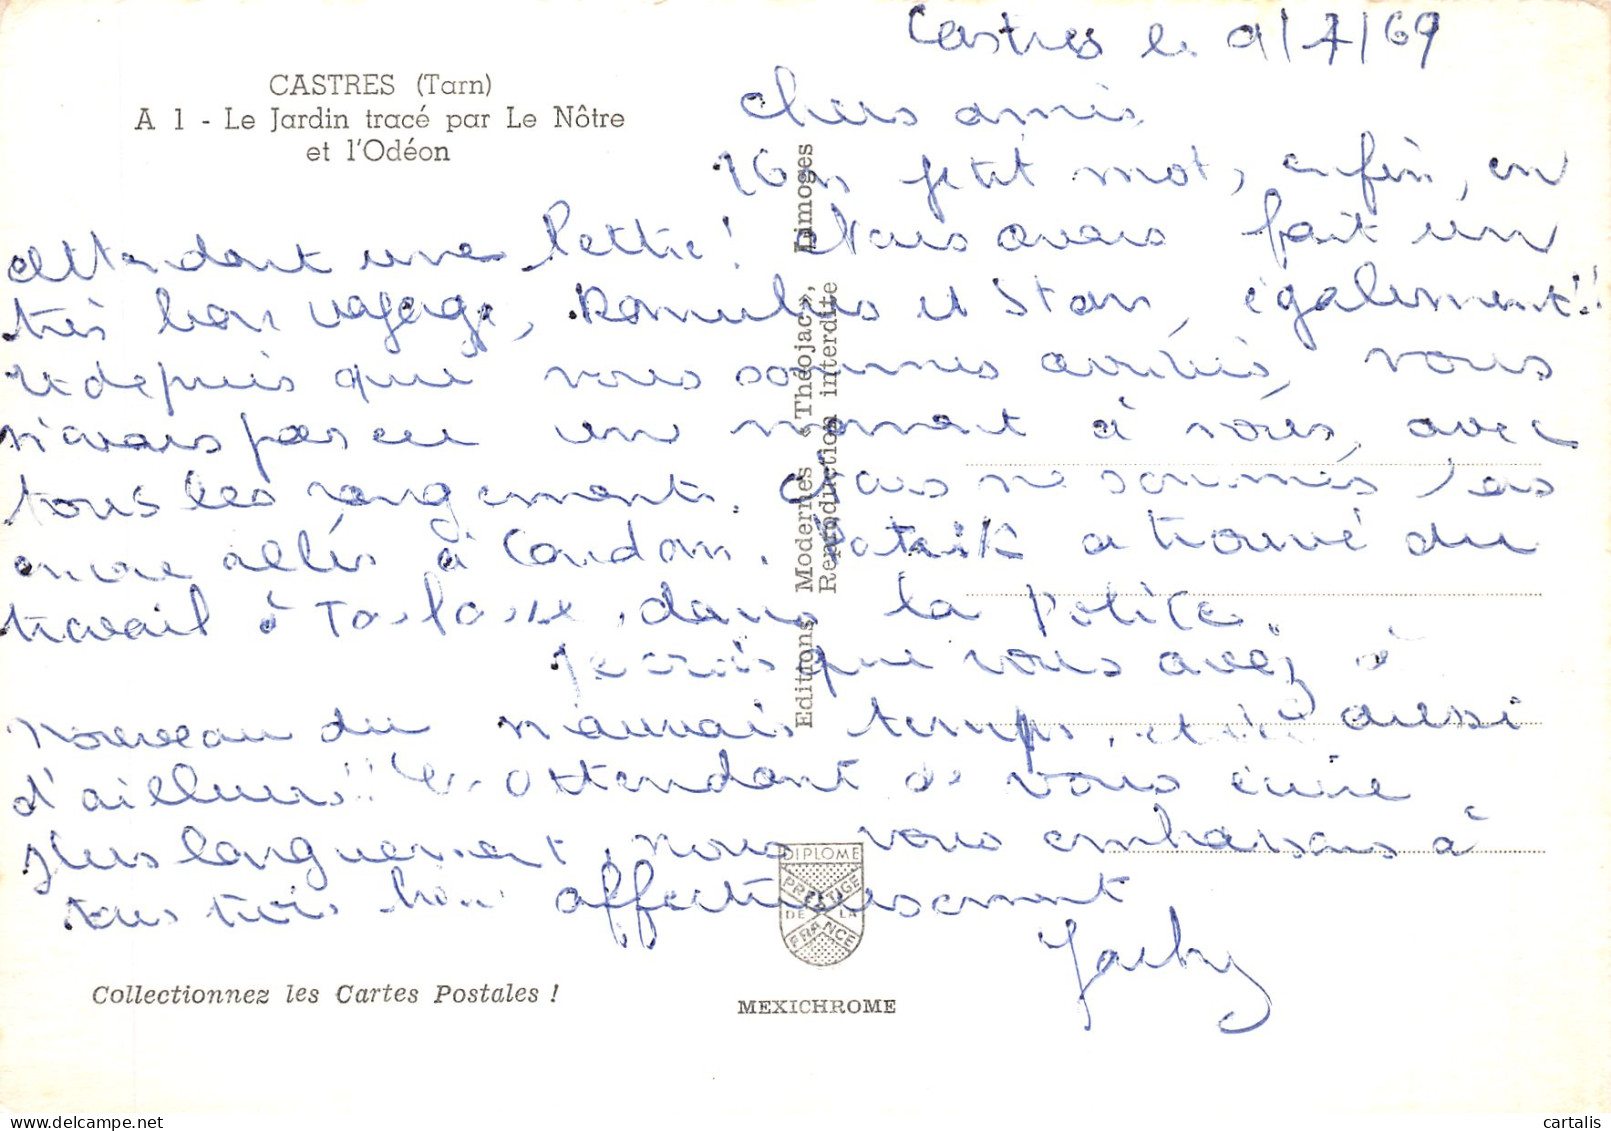 CASTRES (Tarn)
A 1 - Le Jardin tracé par Le Nôtre
et l'Odéon
Castres le 9/7/69
Chers amis
Un petit mot, enfin, en
attendant une lettre! Nous avons fait un
très bon voyage, Romulus et Stan, également!!
et depuis que nous sommes arrivés, nous
n'avons pas eu un moment à nous, avec
tous les rangements. Nous ne sommes pas
encore allés à Condom. Patrick a trouvé du
travail à Toulouse, dans la Police.
Je crois que vous avez à
nouveau du mauvais temps, ici aussi
d'ailleurs!! En attendant de vous écrire
plus longuement, nous vous embrassons à
tous trois bien affectueusement
Jacky
Editions Modernes « Théojac », Limoges
Reproduction interdite
DIPLOME
PRESTIGE
DE LA
FRANCE
Collectionnez les Cartes Postales !
MEXICHROME
delcampe.net
cartalis